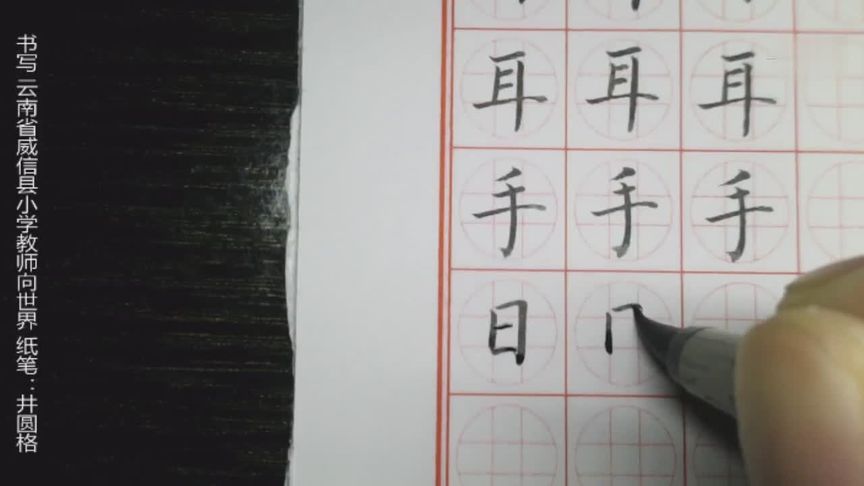 书写 云南省威信县小学教师向世界 纸笔：井圆格
耳 耳 耳
手 手 手
日